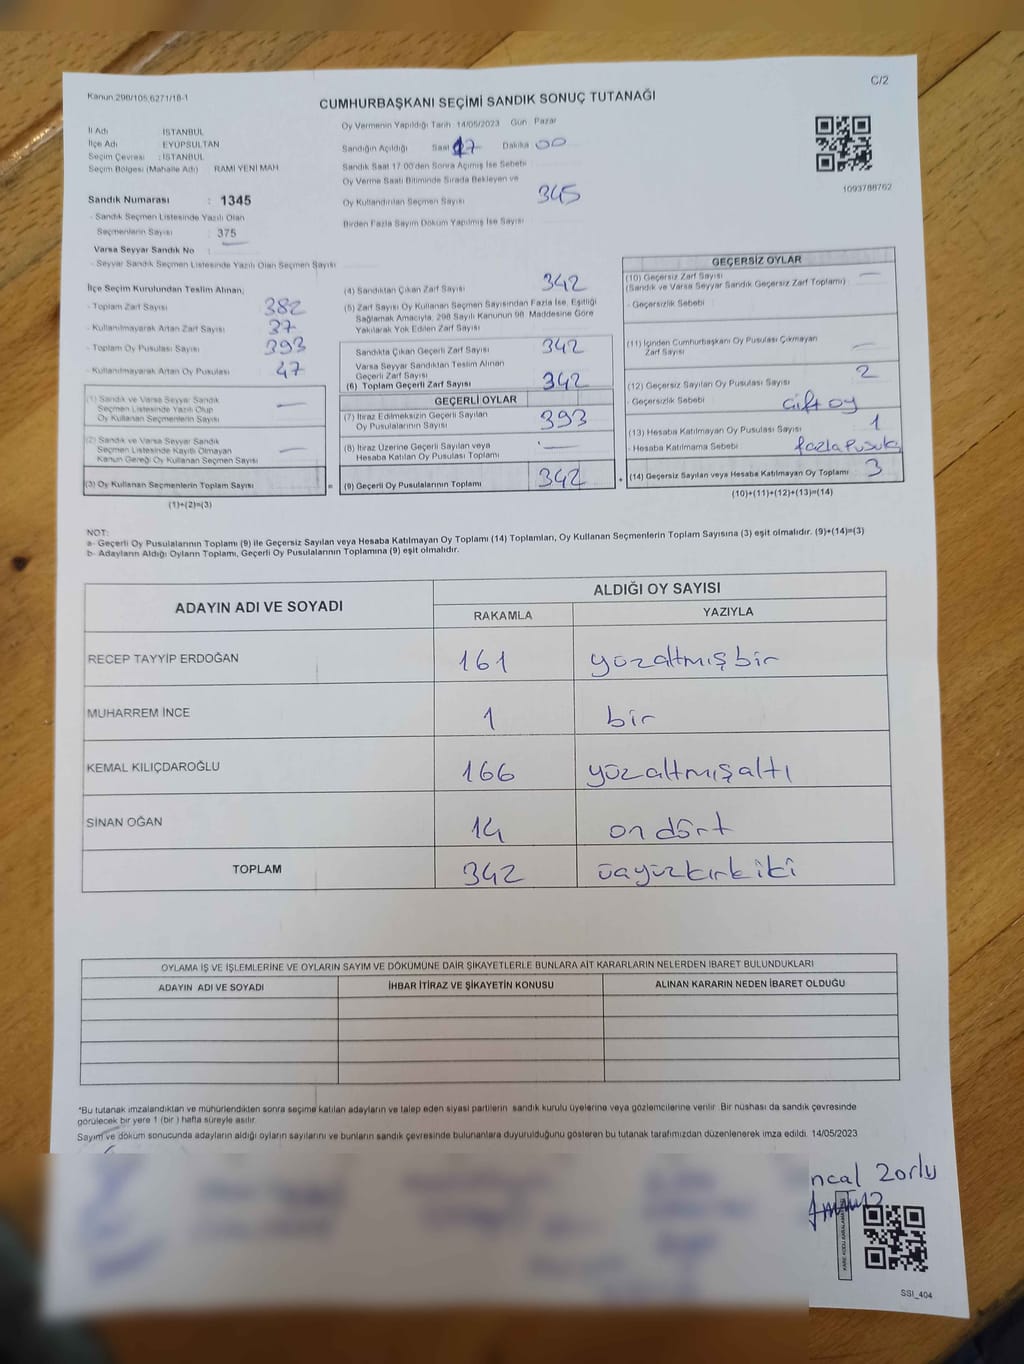 Kanun:298/105,6271/18-1
C/2
CUMHURBAŞKANI SEÇİMİ SANDIK SONUÇ TUTANAĞI
İl Adı : İSTANBUL
İlçe Adı : EYÜPSULTAN
Seçim Çevresi : İSTANBUL
Seçim Bölgesi (Mahalle Adı) RAMİ YENİ MAH.
Oy Vermenin Yapıldığı Tarih 14/05/2023 Gün Pazar
Sandığın Açıldığı Saat 17 Dakika 00
Sandık Saat 17:00'den Sonra Açılmış İse Sebebi
Oy Verme Saati Bitiminde Sırada Bekleyen ve
Oy Kullandırılan Seçmen Sayısı 345
Birden Fazla Sayım Döküm Yapılmış İse Sayısı
1093788762
Sandık Numarası : 1345
- Sandık Seçmen Listesinde Yazılı Olan
Seçmenlerin Sayısı : 375
Varsa Seyyar Sandık No :
- Seyyar Sandık Seçmen Listesinde Yazılı Olan Seçmen Sayısı
İlçe Seçim Kurulundan Teslim Alınan;
- Toplam Zarf Sayısı 382
- Kullanılmayarak Artan Zarf Sayısı 37
- Toplam Oy Pusulası Sayısı 393
- Kullanılmayarak Artan Oy Pusulası 47
(1) Sandık ve Varsa Seyyar Sandık
Seçmen Listesinde Yazılı Olup
Oy Kullanan Seçmenlerin Sayısı —
(2) Sandık ve Varsa Seyyar Sandık
Seçmen Listesinde Kayıtlı Olmayan
Kanun Gereği Oy Kullanan Seçmen Sayısı —
(3) Oy Kullanan Seçmenlerin Toplam Sayısı =
(1)+(2)=(3)
(4) Sandıktan Çıkan Zarf Sayısı 342
(5) Zarf Sayısı Oy Kullanan Seçmen Sayısından Fazla İse, Eşitliği
Sağlamak Amacıyla, 298 Sayılı Kanunun 98. Maddesine Göre
Yakılarak Yok Edilen Zarf Sayısı
Sandıkta Çıkan Geçerli Zarf Sayısı 342
Varsa Seyyar Sandıktan Teslim Alınan
Geçerli Zarf Sayısı
(6) Toplam Geçerli Zarf Sayısı 342
GEÇERLİ OYLAR
(7) İtiraz Edilmeksizin Geçerli Sayılan
Oy Pusulalarının Sayısı 393
(8) İtiraz Üzerine Geçerli Sayılan veya
Hesaba Katılan Oy Pusulası Toplamı —
(9) Geçerli Oy Pusulalarının Toplamı 342 +
GEÇERSİZ OYLAR
(10) Geçersiz Zarf Sayısı —
(Sandık ve Varsa Seyyar Sandık Geçersiz Zarf Toplamı)
- Geçersizlik Sebebi
(11) İçinden Cumhurbaşkanı Oy Pusulası Çıkmayan
Zarf Sayısı —
(12) Geçersiz Sayılan Oy Pusulası Sayısı 2
- Geçersizlik Sebebi Çift oy
(13) Hesaba Katılmayan Oy Pusulası Sayısı 1
- Hesaba Katılmama Sebebi fazla Pusula
(14) Geçersiz Sayılan veya Hesaba Katılmayan Oy Toplamı 3
(10)+(11)+(12)+(13)=(14)
NOT:
a- Geçerli Oy Pusulalarının Toplamı (9) ile Geçersiz Sayılan veya Hesaba Katılmayan Oy Toplamı (14) Toplamları, Oy Kullanan Seçmenlerin Toplam Sayısına (3) eşit olmalıdır. (9)+(14)=(3)
b- Adayların Aldığı Oyların Toplamı, Geçerli Oy Pusulalarının Toplamına (9) eşit olmalıdır.
ADAYIN ADI VE SOYADI
ALDIĞI OY SAYISI
RAKAMLA YAZIYLA
RECEP TAYYİP ERDOĞAN 161 yüzaltmışbir
MUHARREM İNCE 1 bir
KEMAL KILIÇDAROĞLU 166 yüzaltmışaltı
SİNAN OĞAN 14 on dört
TOPLAM 342 üçyüzkırkiki
OYLAMA İŞ VE İŞLEMLERİNE VE OYLARIN SAYIM VE DÖKÜMÜNE DAİR ŞİKAYETLERLE BUNLARA AİT KARARLARIN NELERDEN İBARET BULUNDUKLARI
ADAYIN ADI VE SOYADI İHBAR İTİRAZ VE ŞİKAYETİN KONUSU ALINAN KARARIN NEDEN İBARET OLDUĞU
*Bu tutanak imzalandıktan ve mühürlendikten sonra seçime katılan adayların ve talep eden siyasi partilerin sandık kurulu üyelerine veya gözlemcilerine verilir. Bir nüshası da sandık çevresinde
görülecek bir yere 1 (bir) hafta süreyle asılır.
Sayım ve döküm sonucunda adayların aldığı oyların sayılarını ve bunların sandık çevresinde bulunanlara duyurulduğunu gösteren bu tutanak tarafımızdan düzenlenerek imza edildi. 14/05/2023
ncal Zorlu
SSI_404